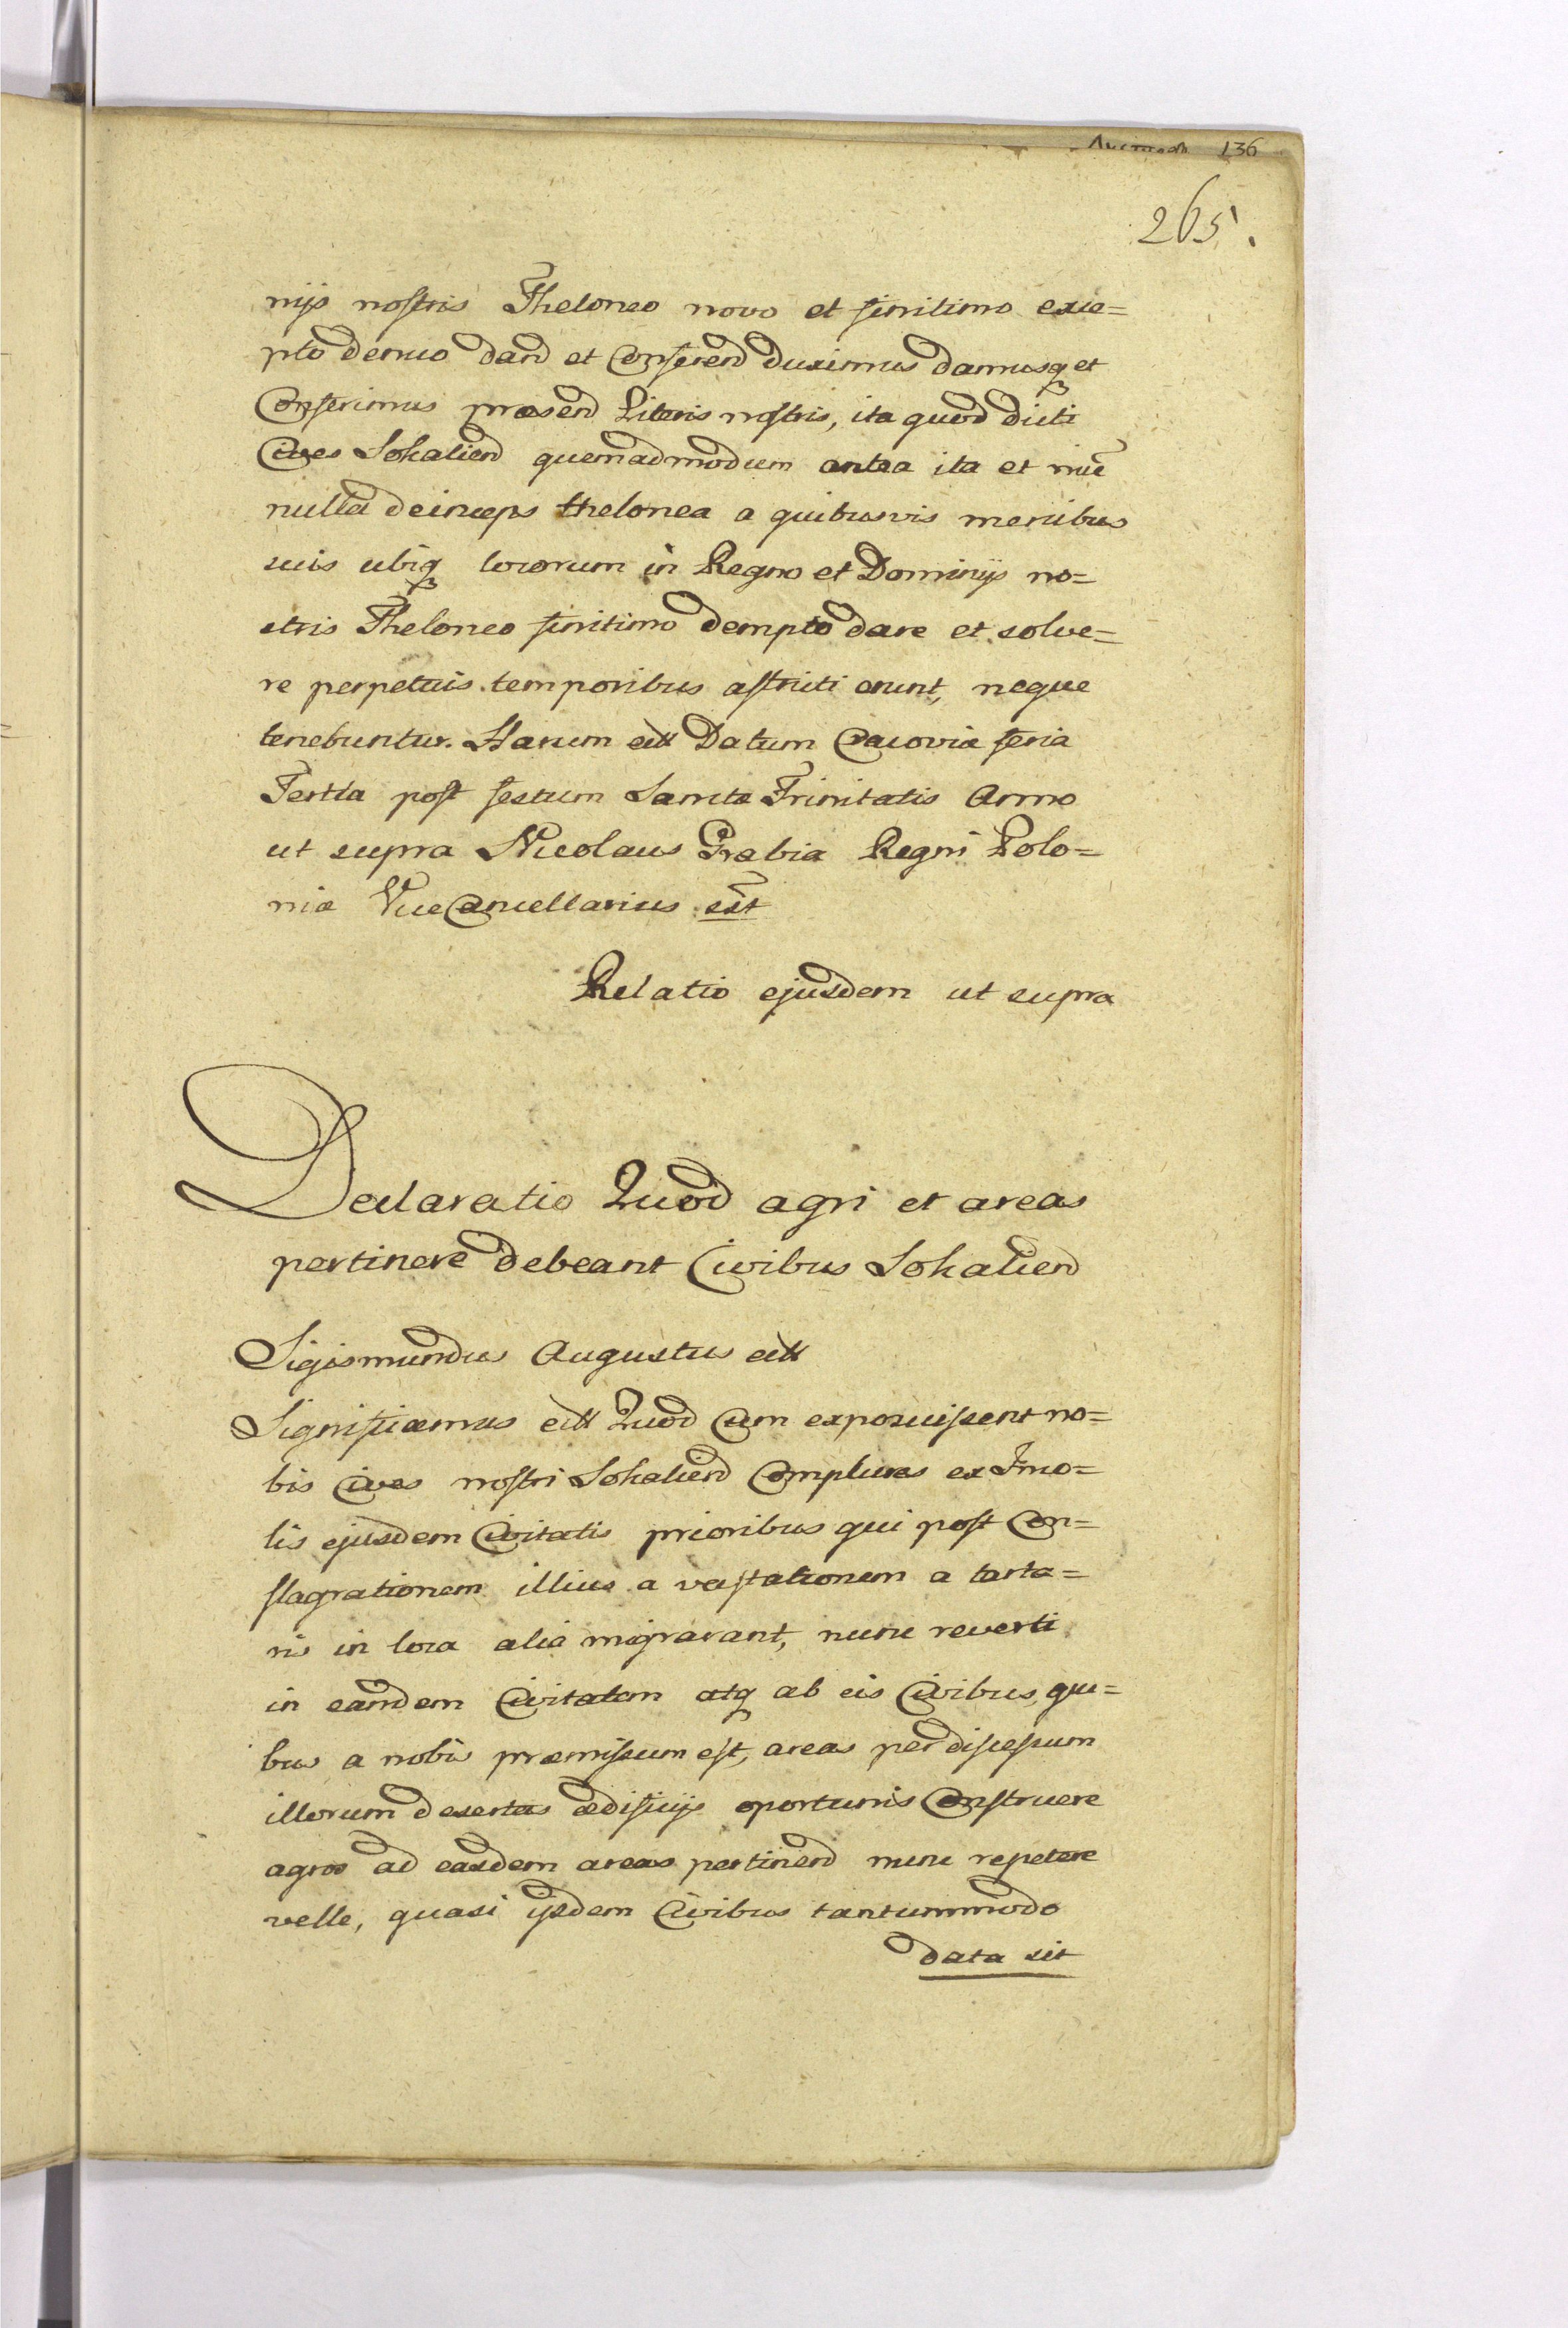 Листов 136
265.
nijs nostris Theloneo novo et finitimo exce=
pto denuo dand et Conferend duximus damusq et
Conferimus præsend Literis nostris, ita quod dicti
Cives Sokaliend quemadmodum antea ita et nuc
nulla deinceps thelonea a quibusvis mercibus
suis ubiq locorum in Regno et Dominijs no=
stris Theloneo finitimo dempto dare et solve=
re perpetuis temporibus astricti erunt, neque
tenebuntur. Harum ett Datum Cracoviæ feria
Tertia post festum Sanctæ Trinitatis Anno
ut supra Nicolaus Græbia Regni Polo=
niæ ViceCancellarius sst
Relatio ejusdem ut supra
Declaratio Quod agri et areas
pertinere debeant Civibus Sokaliend
Sigismundus Augustus ett
Significamus ett Quod Cum exposuissent no=
bis Cives nostri Sokaliend Complures ex Inco=
lis ejusdem Civitatis prioribus qui post Con=
flagrationem illius a vastationem a tarta=
ris in loca alia migrarant, nunc reverti
in eamdem Civitatem atq ab eis Civibus, qui=
bus a nobis præmissum est, areas per discessum
illorum desertas ædificijs oportunis Construere
agros ad easdem areas pertinend nunc repetere
velle, quasi ijsdem Civibus tantummodo
data sit